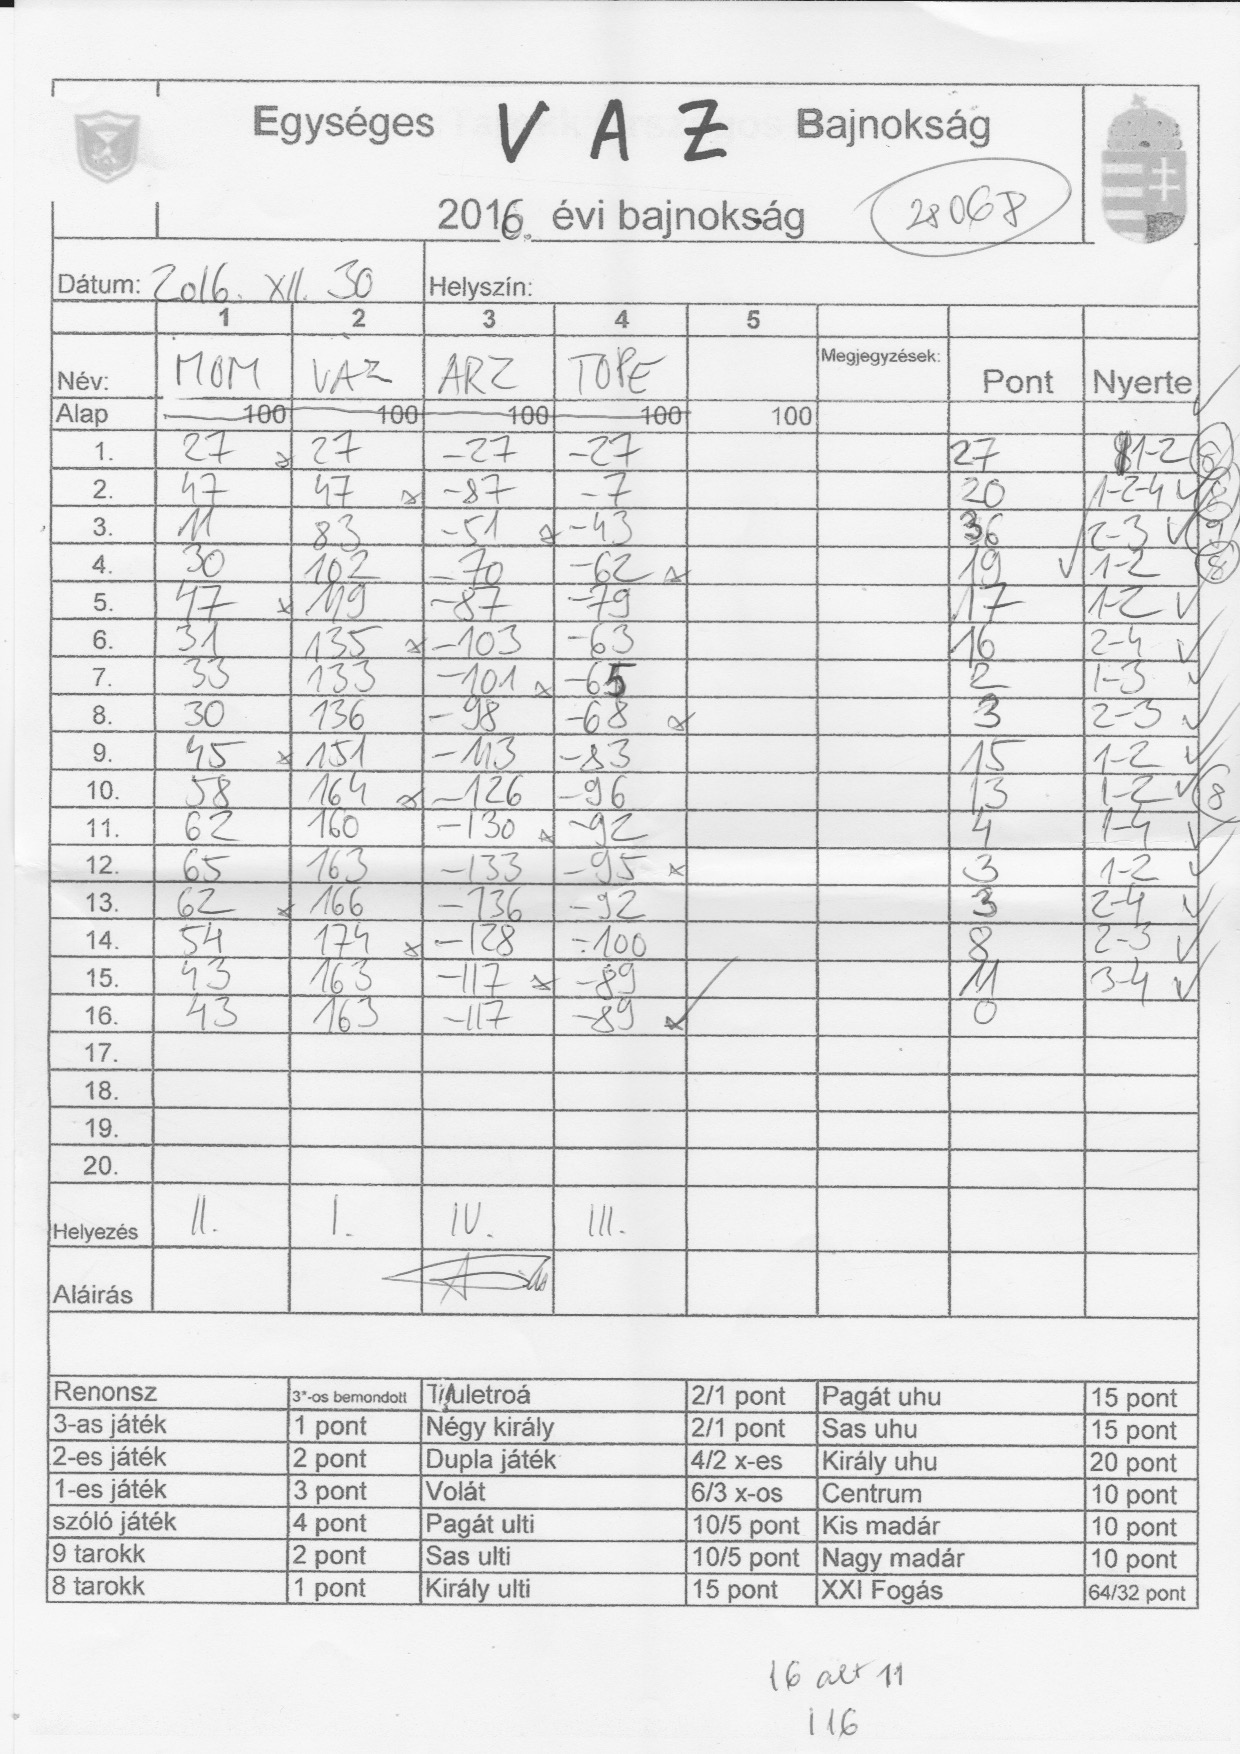 Egységes VAZ Bajnokság
2016. évi bajnokság 28068
Dátum: 2016. XII. 30 Helyszín:
1 2 3 4 5
Név: MOM VAZ ARZ TOPE Megjegyzések: Pont Nyerte
Alap 100 100 100 100 100
1. 27 27 -27 -27 27 1-2 8
2. 47 47 -87 -7 20 1-2-4
3. 11 83 -51 -43 36 2-3 9
4. 30 102 -70 -62 19 1-2 8
5. 47 119 -87 -79 17 1-2
6. 31 135 -103 -63 16 2-4
7. 33 133 -101 -65 2 1-3
8. 30 136 -98 -68 3 2-3
9. 45 151 -113 -83 15 1-2
10. 58 164 -126 -96 13 1-2 8
11. 62 160 -130 -92 4 1-4
12. 65 163 -133 -95 3 1-2
13. 62 166 -136 -92 3 2-4
14. 54 174 -128 -100 8 2-3
15. 43 163 -117 -89 11 3-4
16. 43 163 -117 -89 0
17.
18.
19.
20.
Helyezés II. I. IV. III.
Aláírás
Renonsz 3*-os bemondott Tuletroá 2/1 pont Pagát uhu 15 pont
3-as játék 1 pont Négy király 2/1 pont Sas uhu 15 pont
2-es játék 2 pont Dupla játék 4/2 x-es Király uhu 20 pont
1-es játék 3 pont Volát 6/3 x-os Centrum 10 pont
szóló játék 4 pont Pagát ulti 10/5 pont Kis madár 10 pont
9 tarokk 2 pont Sas ulti 10/5 pont Nagy madár 10 pont
8 tarokk 1 pont Király ulti 15 pont XXI Fogás 64/32 pont
16 alt 11
116